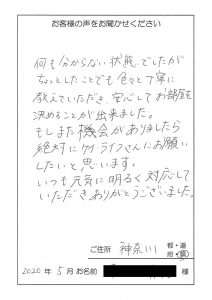 お客様の声をお聞かせください
何も分からない状態でしたが
ちょっとしたことでも色々と丁寧に
教えていただき、安心してお部屋を
決めることが出来ました。
もしまた機会がありましたら
絶対にケイライフさんにお願い
したいと思います。
いつも元気に明るく対応して
いただきありがとうございました。
ご住所 神奈川 都・道 府・県
2020年 5月 お名前 様